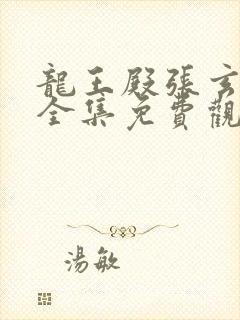 龍王殿張玄
全集免費觀
湯敏